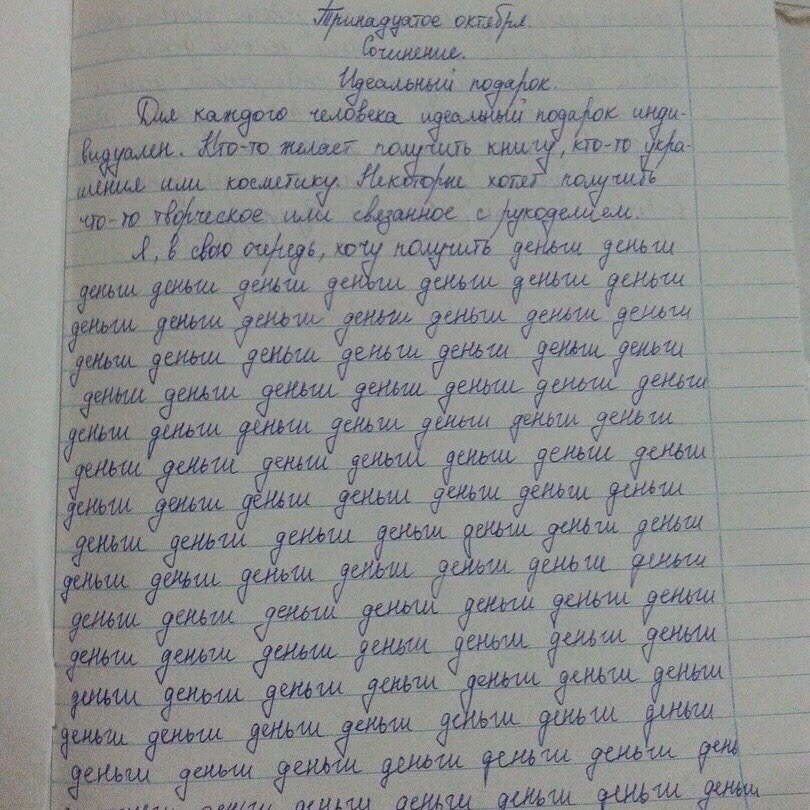 Тринадцатое октября
Сочинение.
Идеальный подарок.
Для каждого человека идеальный подарок инди-
видуален. Кто-то желает получить книгу, кто-то укра-
шения или косметику. Некоторые хотят получить
что-то творческое или связанное с рукоделием.
Я, в свою очередь, хочу получить деньги деньги
деньги деньги деньги деньги деньги деньги деньги
деньги деньги деньги деньги деньги деньги деньги
деньги деньги деньги деньги деньги деньги деньги
деньги деньги деньги деньги деньги деньги деньги
деньги деньги деньги деньги деньги деньги деньги
деньги деньги деньги деньги деньги деньги деньги
деньги деньги деньги деньги деньги деньги деньги
деньги деньги деньги деньги деньги деньги деньги
деньги деньги деньги деньги деньги деньги деньги
деньги деньги деньги деньги деньги деньги деньги
деньги деньги деньги деньги деньги деньги деньги
деньги деньги деньги деньги деньги деньги деньги
деньги деньги деньги деньги деньги деньги деньги
деньги деньги деньги деньги деньги деньги день
деньги деньги деньги деньги деньги деньги